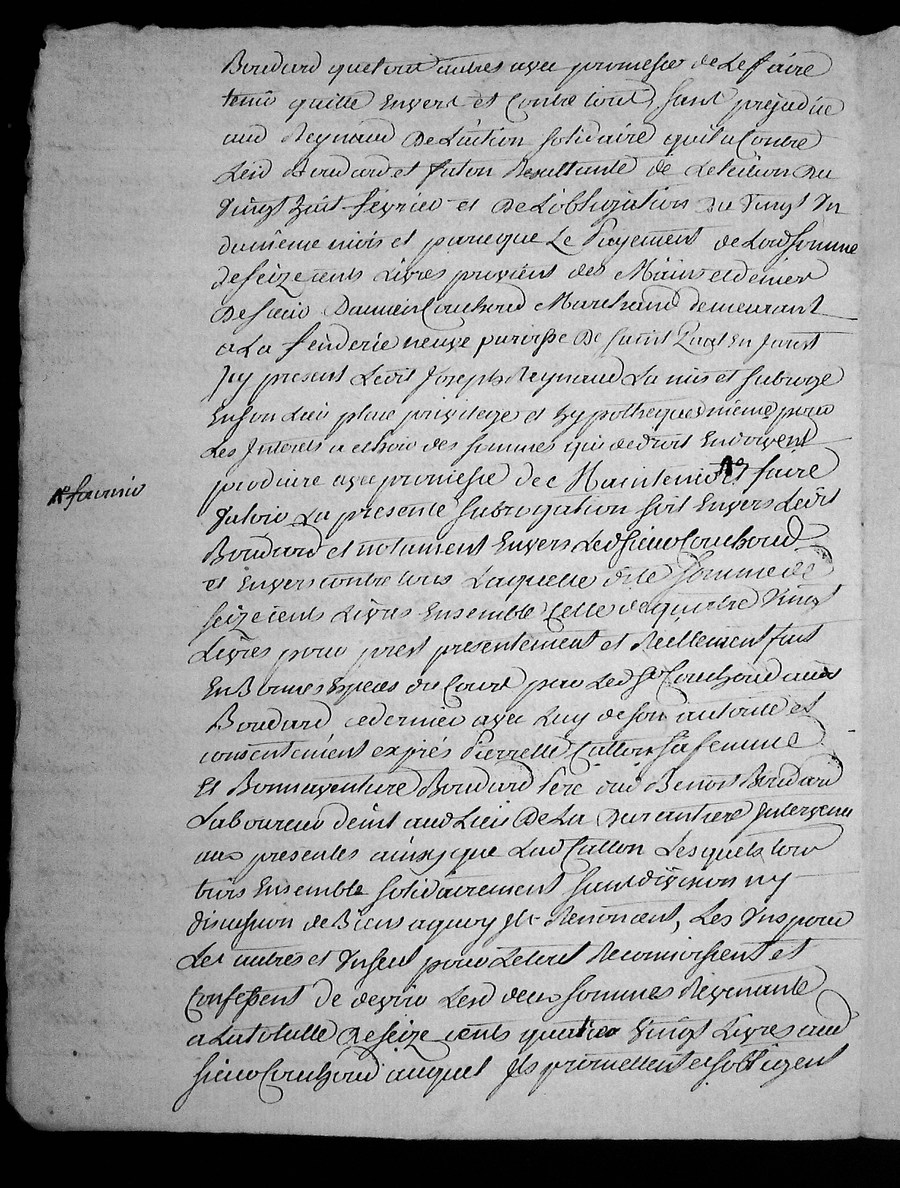 Boudard que tout autres avec promesse de Le faire
tenir quitte Envers et Contre tous, sans prejudice
aud Reynaud De Laction Solidaire qu'il a Contre
Lesd Boudard et faton Resultante de Cession du
Vingt huit fevrier et De Lobligation du Vingt Un
du même mois et parceque Le Payement de Lad Somme
de seize cents Livres provient des Mains et denier
De Sieur Damien Couchoud Marchand demeurant
a La fenderie neuve parroisse De Saint Paul En Jarest
Jcy present Ledit Joseph Reynaud La mis et subrogé
En son Lieu place privileges et hypotheques même pour
Les Jnterets a echoir des sommes qui de droit En doivent
produire avec promesse de Maintenir et faire
Valoir La presente Subrogation soit Envers Ledit
Nº fournir
Boudard et notament Envers Led sieur Couchoud
et Envers contre tous Laquelle dite Somme de
seize cents Livres Ensemble Celle de quatre Vingt
Livres pour prest presentement et Reellement fait
En Bonnes Especes du Cours par Led Sr Couchoud aud
Boudard ce dernier avec Luy de son autorité et
consentement exprés Pierrette Catton sa femme
Et Bonnaventure Boudard fere dud Benoit Boudard
Laboureur demt aud Lieu De La Durantiere Jntervenu
aux presentes ainsy que Lad Catton Lesquels tous
trois Ensemble Solidairement sans division ny
discussion de Biens a quoy Jls Renoncent, Les Uns pour
Les autres et Un seul pour Le tout Reconnoissent et
Confessent De devoir Lesd deux sommes Revenante
a La totalle De seize cents quatre Vingt Livres aud
sieur Couchoud auquel Jls promettent et sobligent